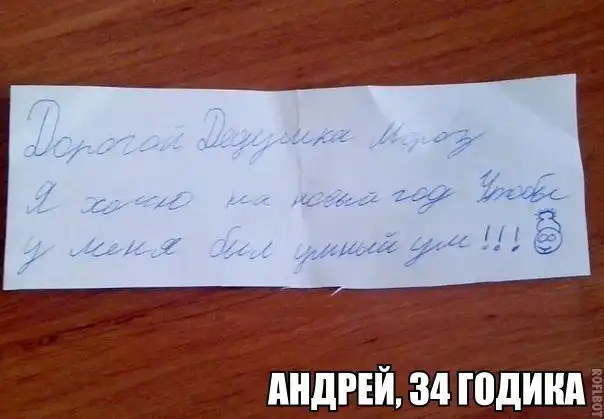 Дорогой Дедушка Мороз
Я хочю на новый год Чтобы
у меня был умный ум!!!
АНДРЕЙ, 34 ГОДИКА
ROFLBO